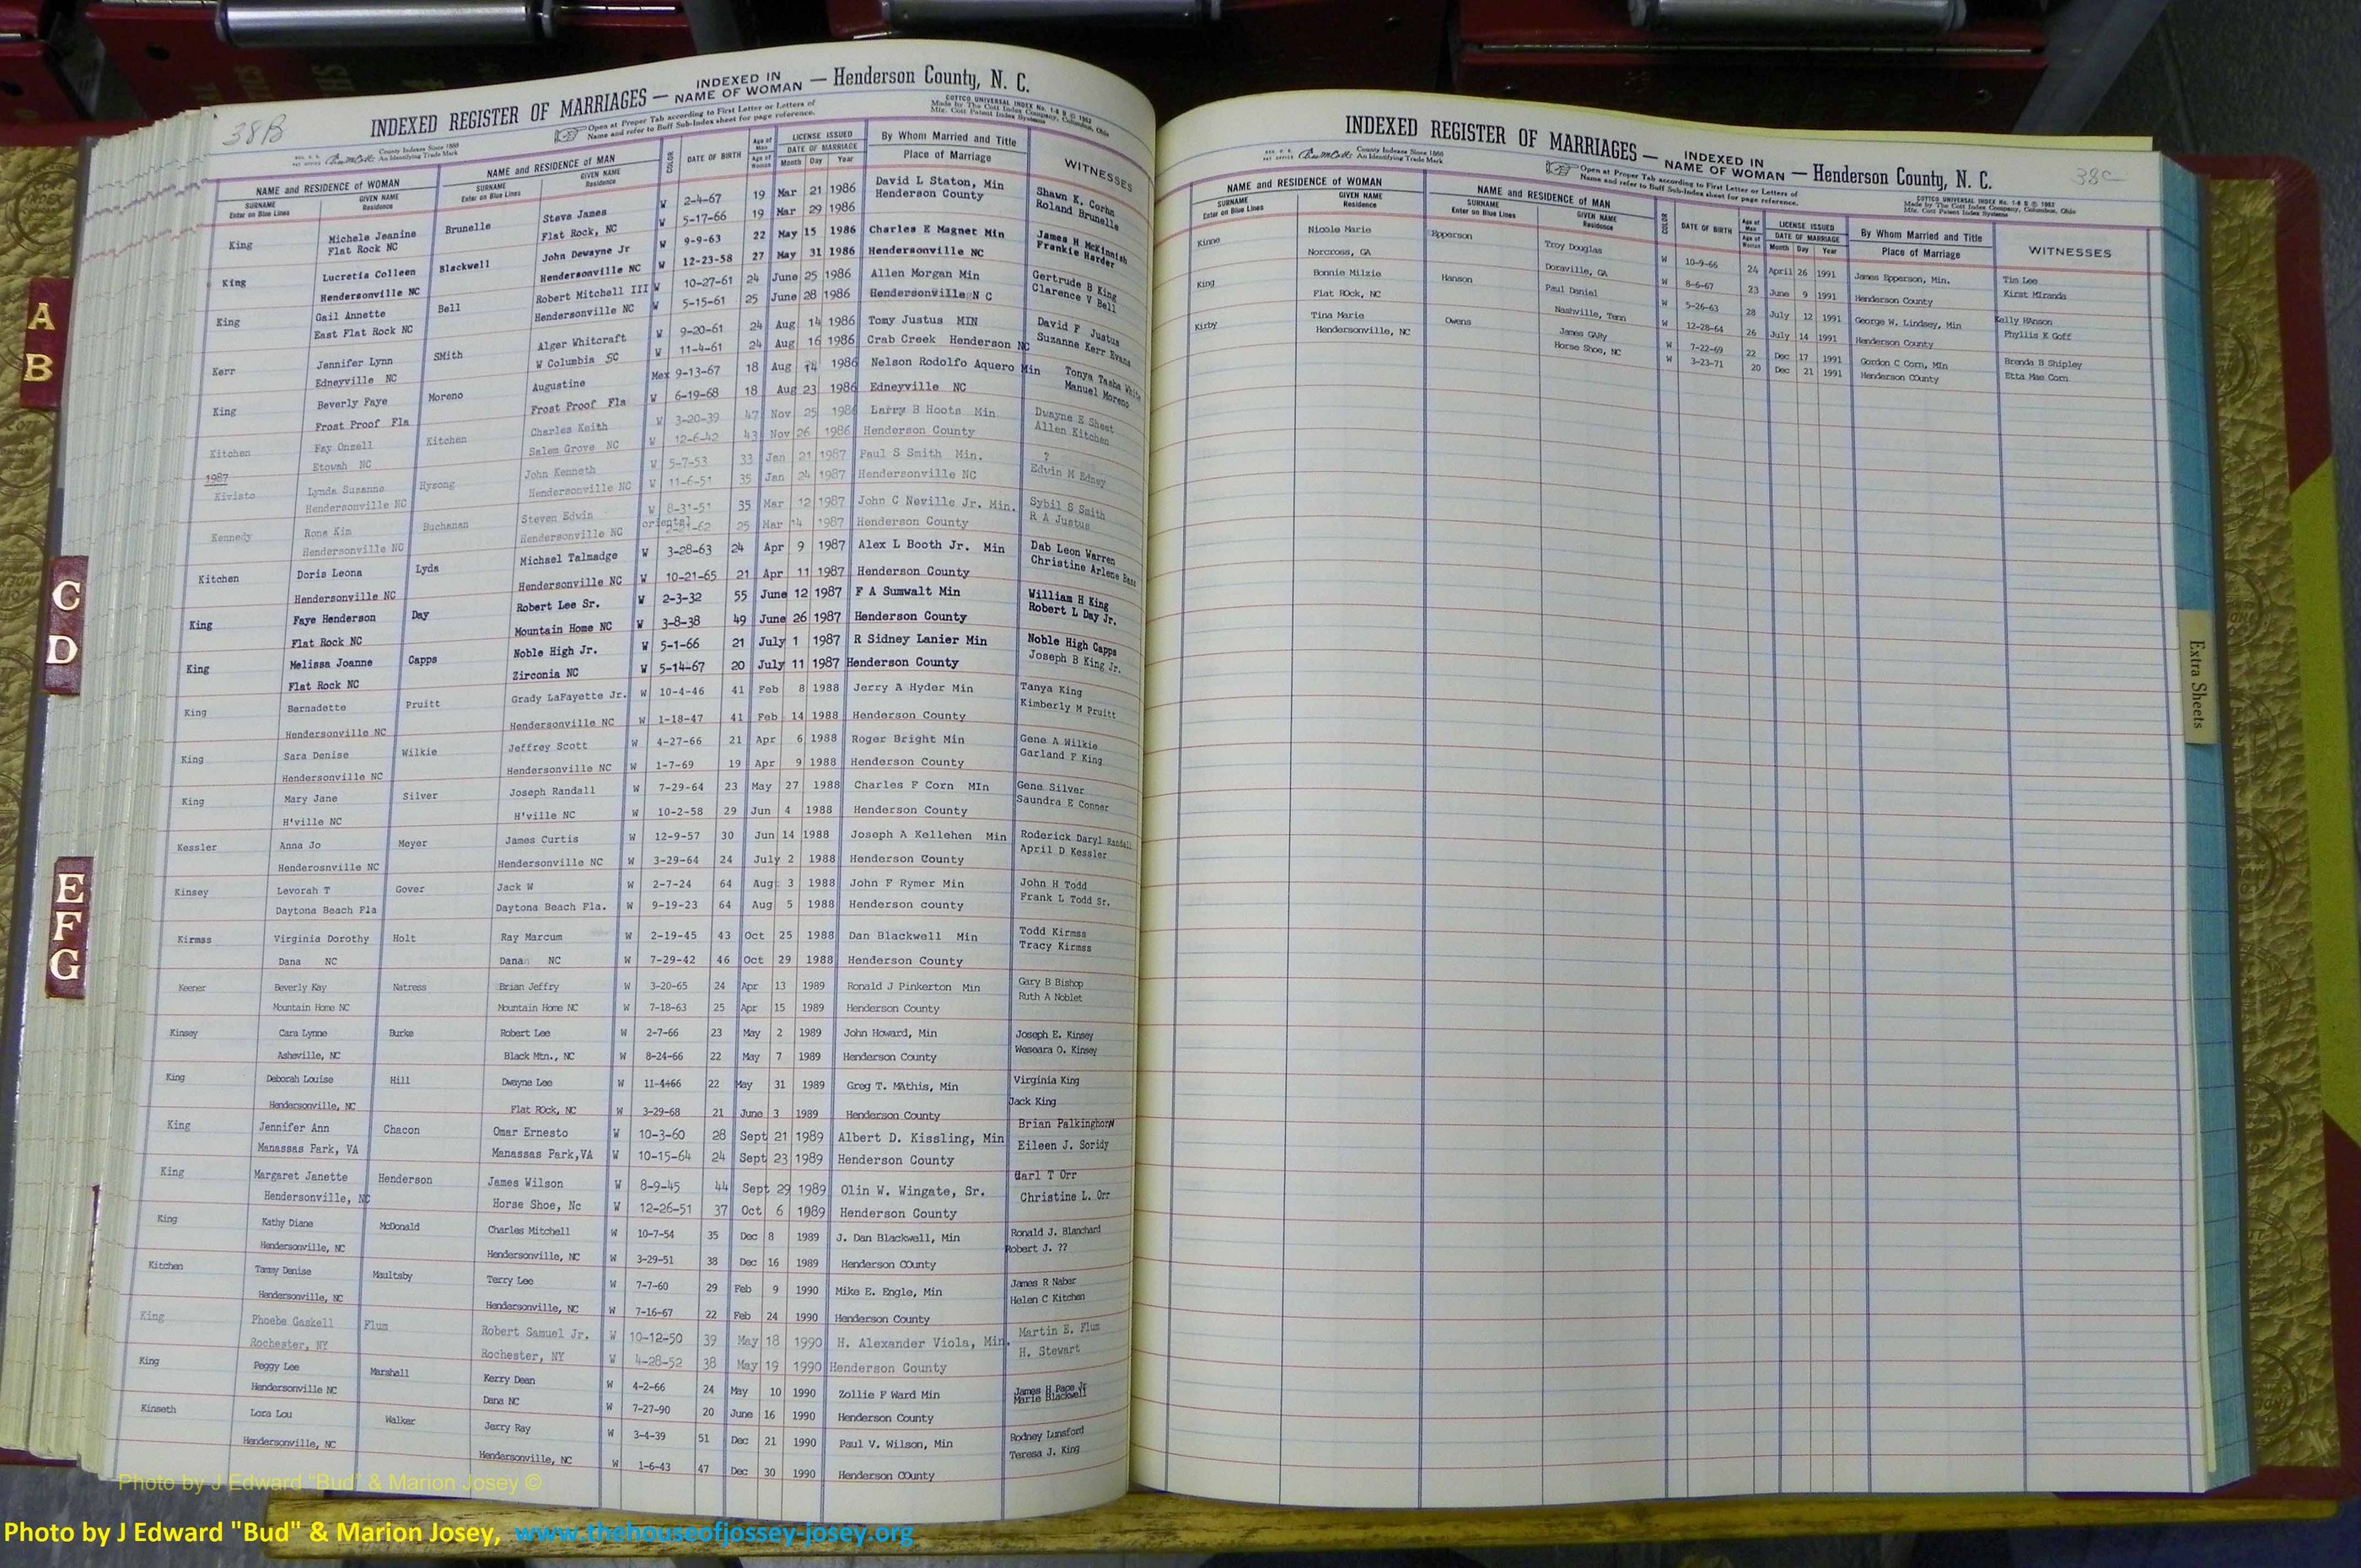 38B
INDEXED REGISTER OF MARRIAGES — INDEXED IN NAME OF WOMAN — Henderson County, N. C.
Open at Proper Tab according to First Letter or Letters of
Name and refer to Buff Sub-Index sheet for page reference.
COTTCO UNIVERSAL INDEX
Made by The Cott Index Company, Columbus, Ohio
Mfg. Cott Patent Index Systems
County Indexes Since 1888
An Identifying Trade Mark
NAME and RESIDENCE of WOMAN NAME and RESIDENCE of MAN COLOR DATE OF BIRTH Age of Man LICENSE ISSUED By Whom Married and Title WITNESSES
SURNAME GIVEN NAME SURNAME GIVEN NAME Age of Woman DATE OF MARRIAGE Place of Marriage
Enter on Blue Lines Residence Enter on Blue Lines Residence Month Day Year
King Michele Jeanine Brunelle Steve James W 2-4-67 19 Mar 21 1986 David L Staton, Min Shawn K. Corhn
Flat Rock NC Flat Rock, NC W 5-17-66 19 Mar 29 1986 Henderson County Roland Brunelle
King Lucretia Colleen Blackwell John Dewayne Jr W 9-9-63 22 May 15 1986 Charles E Magnet Min James H McKinnish
Hendersonville NC Hendersonville NC W 12-23-58 27 May 31 1986 Hendersonville NC Frankie Harder
King Gail Annette Bell Robert Mitchell III W 10-27-61 24 June 25 1986 Allen Morgan Min Gertrude B King
East Flat Rock NC Hendersonville NC W 5-15-61 25 June 28 1986 Hendersonville N C Clarence V Bell
Kerr Jennifer Lynn SMith Alger Whitcraft W 9-20-61 24 Aug 14 1986 Tomy Justus MIN David F Justus
Edneyville NC W Columbia SC W 11-4-61 24 Aug 16 1986 Crab Creek Henderson NC Suzanne Kerr Evans
King Beverly Faye Moreno Augustine Mex 9-13-67 18 Aug 14 1986 Nelson Rodolfo Aquero Min Tonya Tasha White
Frost Proof Fla Frost Proof Fla W 6-19-68 18 Aug 23 1986 Edneyville NC Manuel Moreno
Kitchen Fay Onzell Kitchen Charles Keith W 3-20-39 47 Nov 25 1986 Larry B Hoots Min Dwayne E Shest
Etowah NC Salem Grove NC W 12-6-42 43 Nov 26 1986 Henderson County Allen Kitchen
1987
Kivisto Lynda Suzanne Hysong John Kenneth W 5-7-53 33 Jan 21 1987 Paul S Smith Min. ?
Hendersonville NC Hendersonville NC W 11-6-51 35 Jan 24 1987 Hendersonville NC Edwin M Edney
Kennedy Rona Kim Buchanan Steven Edwin W 8-31-51 35 Mar 12 1987 John C Neville Jr. Min. Sybil S Smith
Hendersonville NC Hendersonville NC oriental 25 Mar 14 1987 Henderson County R A Justus
Kitchen Doris Leona Lyda Michael Talmadge W 3-28-63 24 Apr 9 1987 Alex L Booth Jr. Min Dab Leon Warren
Hendersonville NC Hendersonville NC W 10-21-65 21 Apr 11 1987 Henderson County Christine Arlene Bane
King Faye Henderson Day Robert Lee Sr. W 2-3-32 55 June 12 1987 F A Sumwalt Min William H King
Flat Rock NC Mountain Home NC W 3-8-38 49 June 26 1987 Henderson County Robert L Day Jr.
King Melissa Joanne Capps Noble High Jr. W 5-1-66 21 July 1 1987 R Sidney Lanier Min Noble High Capps
Flat Rock NC Zirconia NC W 5-14-67 20 July 11 1987 Henderson County Joseph B King Jr.
King Bernadette Pruitt Grady LaFayette Jr. W 10-4-46 41 Feb 8 1988 Jerry A Hyder Min Tanya King
Hendersonville NC Hendersonville NC W 1-18-47 41 Feb 14 1988 Henderson County Kimberly M Pruitt
King Sara Denise Wilkie Jeffrey Scott W 4-27-66 21 Apr 6 1988 Roger Bright Min Gene A Wilkie
Hendersonville NC Hendersonville NC W 1-7-69 19 Apr 9 1988 Henderson County Garland F King
King Mary Jane Silver Joseph Randall W 7-29-64 23 May 27 1988 Charles F Corn MIn Gene Silver
H'ville NC H'ville NC W 10-2-58 29 Jun 4 1988 Henderson County Saundra E Conner
Kessler Anna Jo Meyer James Curtis W 12-9-57 30 Jun 14 1988 Joseph A Kellehen Min Roderick Daryl Randall
Henderosnville NC Hendersonville NC W 3-29-64 24 July 2 1988 Henderson County April D Kessler
Kinsey Levorah T Gover Jack W W 2-7-24 64 Aug 3 1988 John F Rymer Min John H Todd
Daytona Beach Fla Daytona Beach Fla. W 9-19-23 64 Aug 5 1988 Henderson county Frank L Todd Sr.
Kirmss Virginia Dorothy Holt Ray Marcum W 2-19-45 43 Oct 25 1988 Dan Blackwell Min Todd Kirmss
Dana NC Dana NC W 7-29-42 46 Oct 29 1988 Henderson County Tracy Kirmss
Keener Beverly Kay Natress Brian Jeffry W 3-20-65 24 Apr 13 1989 Ronald J Pinkerton Min Gary B Bishop
Mountain Home NC Mountain Home NC W 7-18-63 25 Apr 15 1989 Henderson County Ruth A Noblet
Kinsey Cara Lynne Burke Robert Lee W 2-7-66 23 May 2 1989 John Howard, Min Joseph E. Kinsey
Asheville, NC Black Mtn., NC W 8-24-66 22 May 7 1989 Henderson County Weseara O. Kinsey
King Deborah Louise Hill Dwayne Lee W 11-4+66 22 May 31 1989 Greg T. MAthis, Min Virginia King
Hendersonville, NC Flat ROck, NC W 3-29-68 21 June 3 1989 Henderson County Jack King
King Jennifer Ann Chacon Omar Ernesto W 10-3-60 28 Sept 21 1989 Albert D. Kissling, Min Brian Palkinghorn
Manassas Park, VA Manassas Park,VA W 10-15-64 24 Sept 23 1989 Henderson County Eileen J. Soridy
King Margaret Janette Henderson James Wilson W 8-9-45 44 Sept 29 1989 Olin W. Wingate, Sr. Carl T Orr
Hendersonville, NC Horse Shoe, Nc W 12-26-51 37 Oct 6 1989 Henderson County Christine L. Orr
King Kathy Diane McDonald Charles Mitchell W 10-7-54 35 Dec 8 1989 J. Dan Blackwell, Min Ronald J. Blanchard
Hendersonville, NC Hendersonville, NC W 3-29-51 38 Dec 16 1989 Henderson COunty Robert J. ??
Kitchen Tammy Denise Maultsby Terry Lee W 7-7-60 29 Feb 9 1990 Mike E. Engle, Min James R Naber
Hendersonville, NC Hendersonville, NC W 7-16-67 22 Feb 24 1990 Henderson County Helen C Kitchen
King Phoebe Gaskell Flum Robert Samuel Jr. W 10-12-50 39 May 18 1990 H. Alexander Viola, Min. Martin E. Flum
Rochester, NY Rochester, NY W 4-28-52 38 May 19 1990 Henderson County H. Stewart
King Peggy Lee Marshall Kerry Dean W 4-2-66 24 May 10 1990 Zollie F Ward Min James H Pace Jr
Hendersonville NC Dana NC W 7-27-90 20 June 16 1990 Henderson County Marie Blackwell
Kinseth Lora Lou Walker Jerry Ray W 3-4-39 51 Dec 21 1990 Paul V. Wilson, Min Rodney Lunsford
Hendersonville, NC Hendersonville, NC W 1-6-43 47 Dec 30 1990 Henderson COunty Teresa J. King
38C
INDEXED REGISTER OF MARRIAGES — INDEXED IN NAME OF WOMAN — Henderson County, N. C.
Open at Proper Tab according to First Letter or Letters of
Name and refer to Buff Sub-Index sheet for page reference.
COTTCO UNIVERSAL INDEX
Made by The Cott Index Company, Columbus, Ohio
Mfg. Cott Patent Index Systems
County Indexes Since 1888
An Identifying Trade Mark
NAME and RESIDENCE of WOMAN NAME and RESIDENCE of MAN COLOR DATE OF BIRTH Age of Man LICENSE ISSUED By Whom Married and Title WITNESSES
SURNAME GIVEN NAME SURNAME GIVEN NAME Age of Woman DATE OF MARRIAGE Place of Marriage
Enter on Blue Lines Residence Enter on Blue Lines Residence Month Day Year
Kinne Nicole Marie Epperson Troy Douglas W 10-9-66 24 April 26 1991 James Epperson, Min. Tim Lee
Norcross, GA Doraville, GA W 8-6-67 23 June 9 1991 Henderson County Kirst MIranda
King Bonnie Milzie Hanson Paul Daniel W 5-26-63 28 July 12 1991 George W. Lindsey, Min Kelly HAnson
Flat ROck, NC Nashville, Tenn W 12-28-64 26 July 14 1991 Henderson County Phyllis K Goff
Kirby Tina Marie Owens James GARy W 7-22-69 22 Dec 17 1991 Gordon C Corn, MIn Brenda B Shipley
Hendersonville, NC Horse Shoe, NC W 3-23-71 20 Dec 21 1991 Henderson COunty Etta Mae Corn
A
B
C
D
E
F
G
Extra Sheets
Photo by J Edward "Bud" & Marion Josey ©
Photo by J Edward "Bud" & Marion Josey, www.thehouseofjossey-josey.org